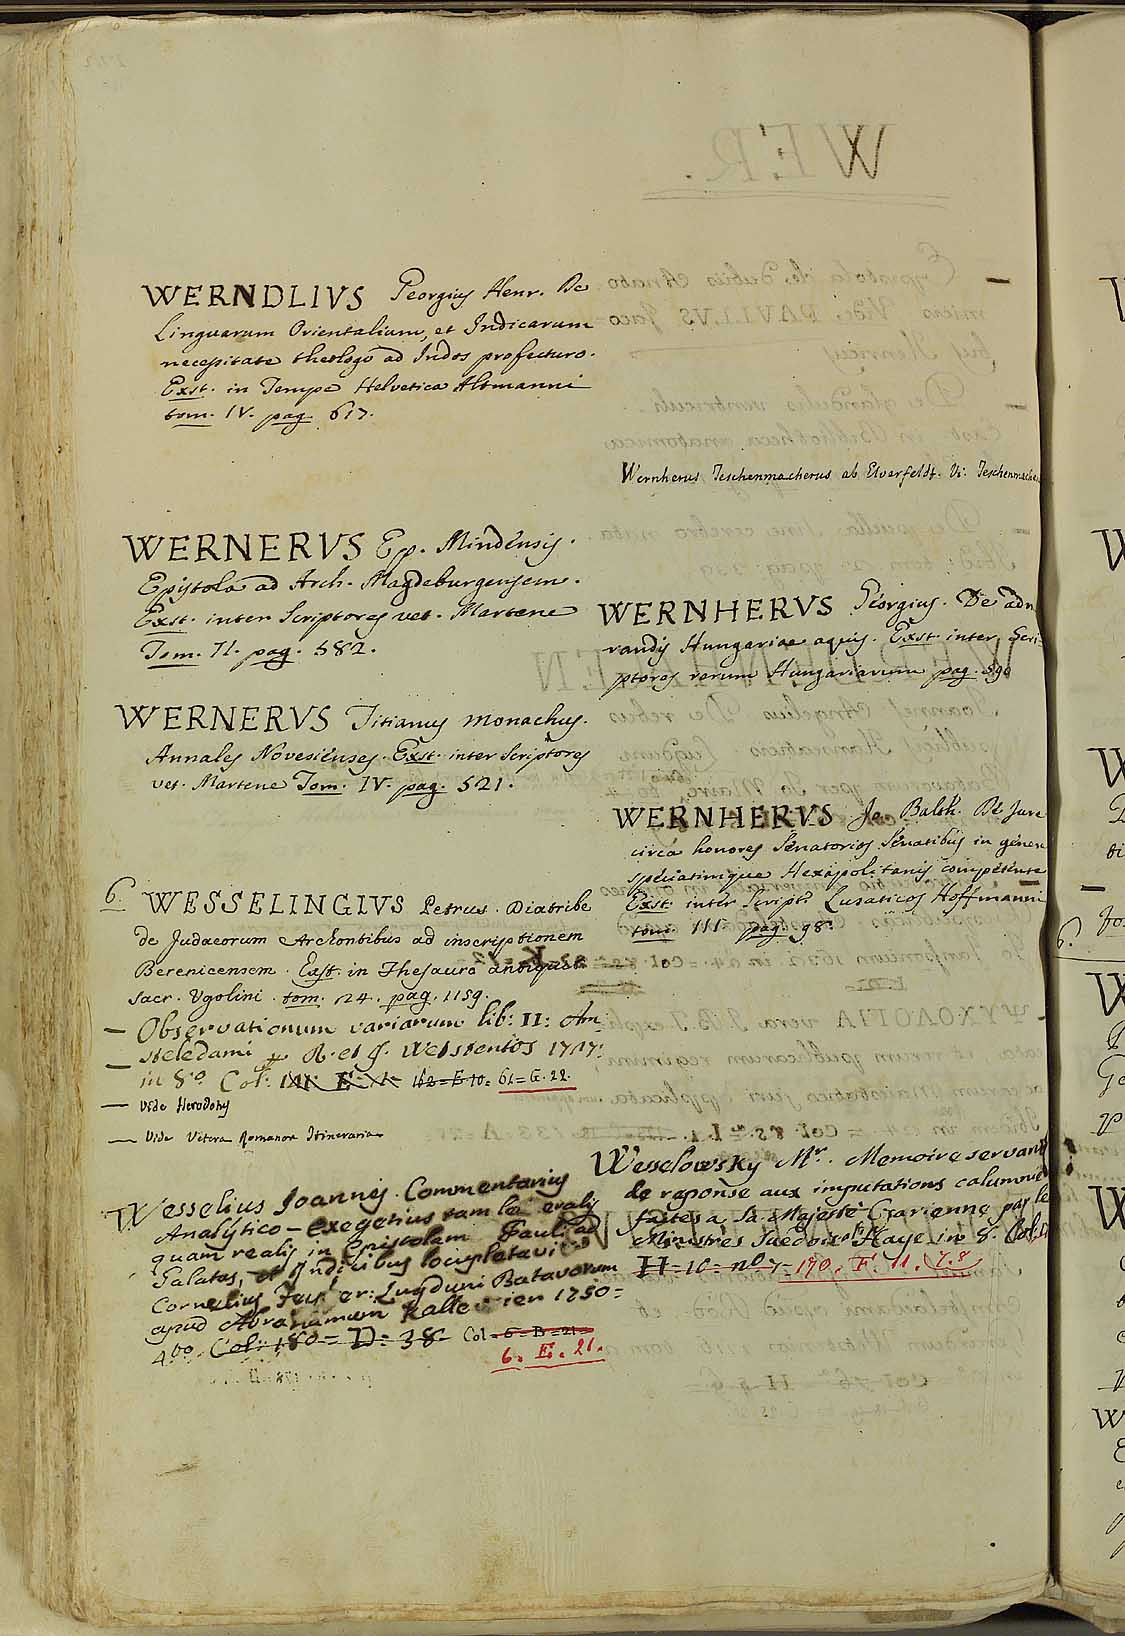 WERNDLIVS Georgius Henr. De
Linguarum Orientalium, et Indicarum
necessitate theologo ad Indos profecturo.
Exst. in Tempe Helvetica Altmanni
tom. IV. pag. 617.
WERNERVS Ep. Mindensis.
Epistola ad Arch. Magdeburgensem.
Exst. inter Scriptores vet. Martene
Tom. II. pag. 582.
WERNERVS Titianus monachus.
Annales Novesienses. Exst. inter Scriptores
vet. Martene Tom. IV. pag. 521.
6. WESSELINGIVS Petrus. Diatribe
de Judaeorum Archontibus ad inscriptionem
Berenicensem. Exst. in Thesauro antiquit.
sacr. Ugolini. tom. 24. pag. 1159.
— Observationum variarum lib: II: Am
— steledami R. et J. Wetstenios 1727:
in 8.o Col: 61=G.22.
— Vide Herodotus
— Vide Vetera Romanor Itineraria
Wesselius Joannis. Commentarius
Analytico-exegeticus tam
quam realis in Epistolam Pauli ad
Galatas, et Indicibus locupletavit
Cornelius er: Lugduni Batavorum
apud Abrahamum Kallewier 1750=
4to. Col: 180= D: 38. Col=6=B=21=
6. E. 21.
Wernherus Teschenmacherus ab Elverfeldt. Vi: Teschenmache
WERNHERVS Georgius. De adm
randis Hungariae aquis. Exst. inter Scri-
ptores rerum Hungaricarum pag. 590
WERNHERVS Jo. Balth. De Jure
circa honores Senatorios Senatibus in genere
speciatimque Hexapolitanis competente
Exst. inter Script. Lusaticos Hoffmanni
tom. III. pag. 98.
Wesselowsky Mr. Memoire servant
de reponse aux imputations calumnie
faites a Sa Majesté Czarienne par le
Ministres Suedois. Haye in 8. Col.
H=10= no 7= 170. F. 11. 7.8